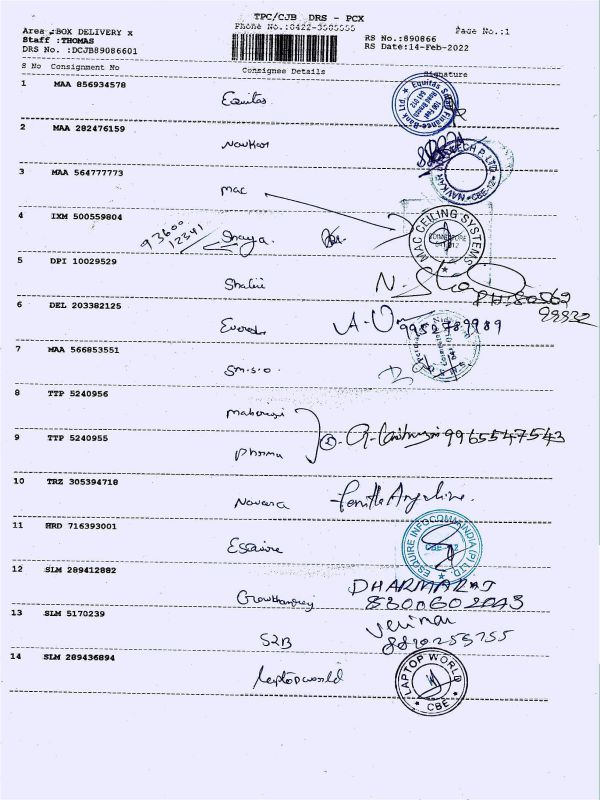 TPC/CJB DRS - PCX
Area :BOX DELIVERY x
Phone No.:0422-3505555
Page No.:1
Staff :THOMAS
RS No.:890866
DRS No. :DCJB89086601
RS Date:14-Feb-2022
S No Consignment No Consignee Details Signature
1 MAA 856934578
Equitas
Equitas Small Finance Bank Ltd.
2 MAA 282476159
Navkar
NAVKAR TECH P. LTD. CBE-12
3 MAA 564777773
mac
4 IXM 500559804
MAC CEILING SYSTEMS
93600
12341
5 DPI 10029529
Shalini
PH:80562
99932
6 DEL 203382125
9952789989
7 MAA 566853551
S.M.S.O
8 TTP 5240956
9 TTP 5240955
Pharma
9965547543
10 TRZ 305394718
11 HRD 716393001
Esquire
ESQUIRE INFOCOM INDIA (P) LTD.
CBE-12
12 SLM 289412882
DHARMARAJ
8300602043
13 SLM 5170239
S2B
14 SLM 289436894
Laptopworld
LAPTOP WORLD
CBE